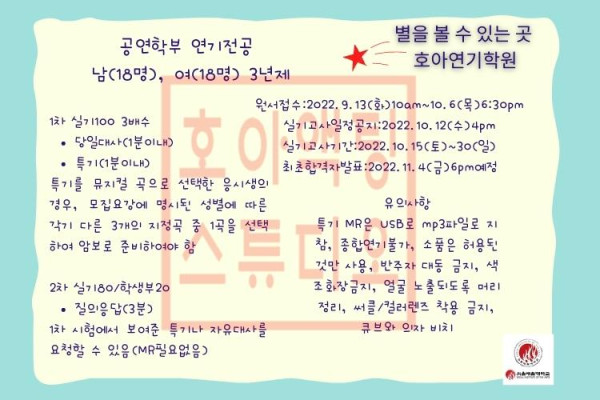 공연학부 연기전공
남(18명), 여(18명) 3년제
별을 볼 수 있는 곳
호아연기학원
1차 실기100 3배수
• 당일대사(1분이내)
• 특기(1분이내)
특기를 뮤지컬 곡으로 선택한 응시생의
경우, 모집요강에 명시된 성별에 따른
각기 다른 3개의 지정곡 중 1곡을 선택
하여 암보로 준비하여야 함
2차 실기80/학생부20
• 질의응답(3분)
1차 시험에서 보여준 특기나 자유대사를
요청할 수 있음(MR필요없음)
원서접수:2022. 9. 13(화)10am~10. 6(목)6:30pm
실기고사일정공지:2022. 10. 12(수)4pm
실기고사기간:2022. 10. 15(토)~30(일)
최초합격자발표:2022. 11. 4(금)6pm예정
유의사항
특기 MR은 USB로 mp3파일로 지
참, 종합연기불가, 소품은 허용된
것만 사용, 반주자 대동 금지, 색
조화장금지, 얼굴 노출되도록 머리
정리, 써클/컬러렌즈 착용 금지,
큐브와 의자 비치
호아액팅
스튜디오
서울예술대학교